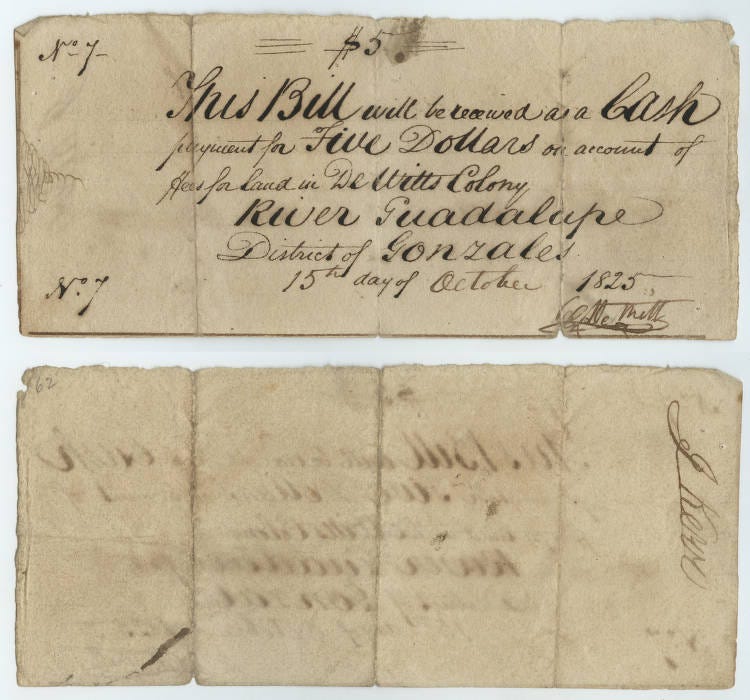 No 7
$5
This Bill will be received as a Cash
payment for Five Dollars on account of
fees for Land in De Witts Colony
River Guadalupe
District of Gonzales
15th day of October 1825
No. 7
De Witt
62
J Kerr